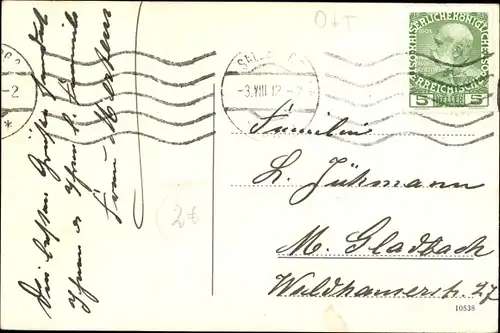 Die besten Grüße sendet
Ihnen u. Ihrer l. Familie
Frau Mertens
O+T
SALZ
-3.VIII 12-2
KAISERLICHE KÖNIGLICHE
ÖSTERREICHISCHE
5 HELLER 5
Familie
L. Jükmann
M. Gladbach
Waldhauserstr. 27
2€
10538